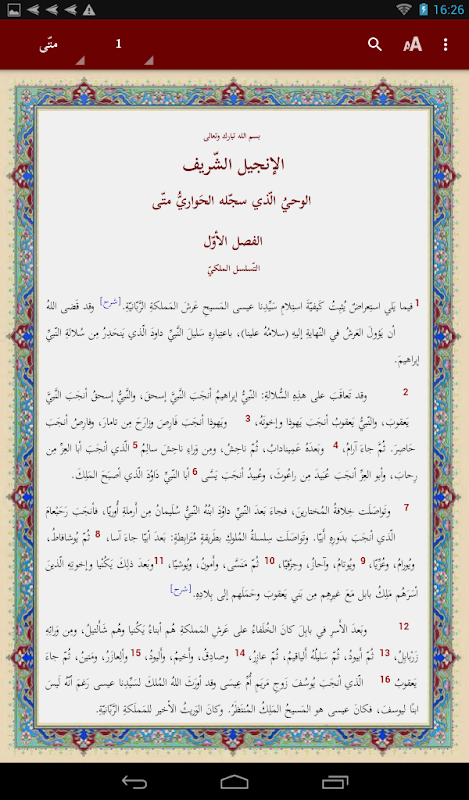 16:26
متّى 1 AA
بسم الله تبارك وتعالى
الإنجيل الشّريف
الوحيُ الّذي سجّله الحَواريُّ متّى
الفصل الأوّل
التّسلسل الملكيّ
1 فيما يَلي استِعراضٌ يُثبِتُ كَيفيّةَ استِلامِ سَيِّدِنا عيسى المَسيحِ عَرشَ المَملكةِ الرَّبّانيّةِ.[شرح] وقد قَضى اللهُ
أن يَؤُولَ العَرشُ في النِّهايةِ إليهِ (سلامُهُ علينا)، باعتِبارِهِ سَليلَ النَّبيِّ داودَ الّذي يَنحَدِرُ مِن سُلالةِ النَّبيِّ
إبراهيمَ.
2 وقد تَعاقَبَ على هذِهِ السُّلالةِ: النَّبيُّ إبراهيمُ أنجَبَ النَّبيَّ إسحقَ، والنَّبيُّ إسحقُ أنجَبَ النَّبيَّ
يَعقوبَ، والنَّبيُّ يَعقوبُ أنجَبَ يَهوذا وإخوتَهُ، 3 ويَهوذا أنجَبَ فارِصَ وزارَحَ مِن تامارَ، وفارِصُ أنجَبَ
حَاصِرَ. ثُمَّ جاءَ آرامُ، 4 وبَعدَهُ عَمِينادابُ، ثُمَّ ناحِشُ، ومِن وَراءِ ناحِشَ سالِمُ 5 الّذي أنجَبَ أبا العِزِّ مِن
رِحابَ، وأبو العِزِّ أنجَبَ عُبَيدَ مِن راعُوثَ، وعُبيدُ أنجَبَ يَسَّى 6 أبا النَّبيِّ دَاوُدَ الّذي أصبَحَ المَلِكَ.
7 وتَواصَلَت خِلافةُ المُختارينَ، فجاءَ بَعدَ النَّبيِّ داوُدَ ابنُهُ النَّبيُّ سُلَيمانُ مِن أرملةِ أُوريّا، فأنجَبَ رَحَبْعامَ
الّذي أنجَبَ بدَورِهِ أبيّا. وتَواصَلَت سِلسلةُ المُلوكِ بطَريقةٍ مُترابِطةٍ: بَعدَ أبيّا جاءَ آسا، 8 ثُمَّ يُوشافاطُ،
ويُورامُ، وعُزِّيّا، 9 ويُوثامُ، وآحازُ، وحِزْقِيّا، 10 ثُمَّ مَنَسَّى، وأمونُ، ويُوشيّا، 11 وبَعدَ ذلِكَ يَكُنْيا وإخوتِهِ الّذينَ
أسَرَهُم مَلِكُ بابِلَ مَعَ غَيرِهِم مِن بَني يَعقوبَ وحَمَلَهم إلى بِلادِهِ.[شرح]
12 وبَعدَ الأسرِ في بابِلَ كانَ الخُلَفاءُ على عَرشِ المَملكةِ هُم أبناءُ يَكُنيا وهُم شَألتيلُ، ومِن وَرائِهِ
زَرُبابِلُ، 13 ثُمَّ أبيودُ، ثُمَّ سَليلُهُ ألياقيمُ، ثُمَّ عازِرُ، 14 وصادِقُ، وأخيمُ، وأليودُ، 15 وأليعازَرُ، ومَتينُ، ثُمَّ جاءَ
يَعقوبُ 16 الّذي أنجَبَ يُوسُفَ زَوجَ مَريَمَ أُمِّ عيسى وقد أورَثَ اللهُ المُلكَ لسَيِّدِنا عيسى رَغمَ أنّهُ لَيسَ
ابنًا ليوسفَ، فكانَ عيسى هو المَسيحُ المَلِكُ المُنتَظَرُ. وكانَ الوَريثُ الأخيرُ للمَملكةِ الرَّبّانيّةِ.